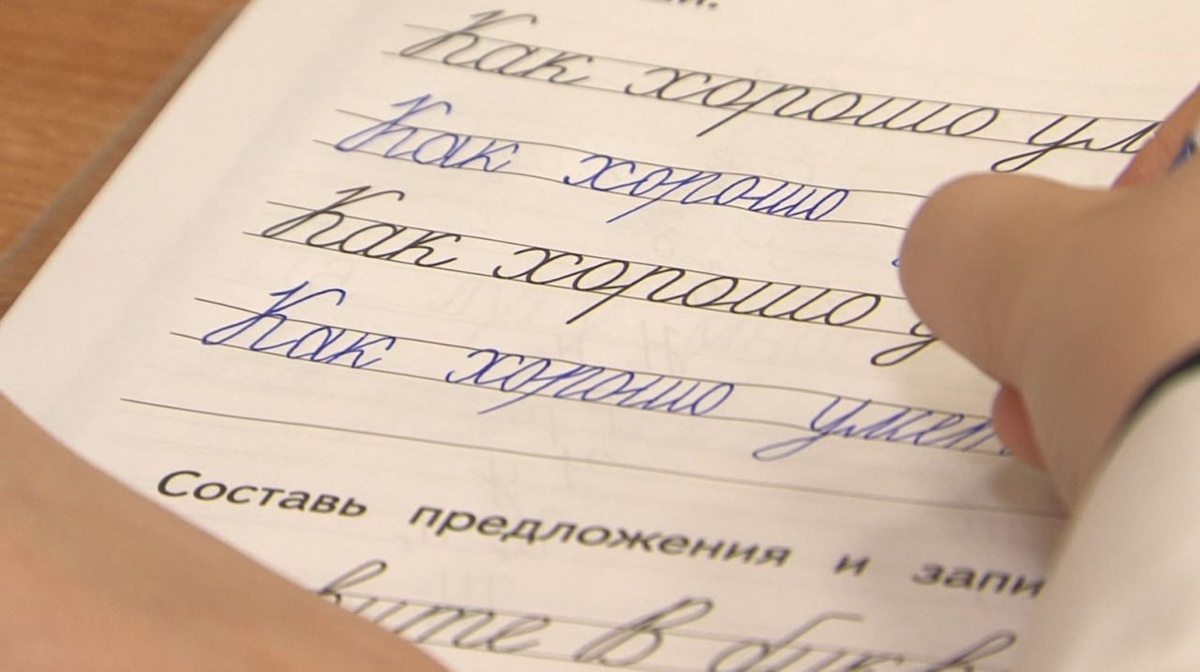 Как хорошо ум
Как хорошо
Как хорошо у
Как хорошо умет
Составь предложения и запи
ките в букв